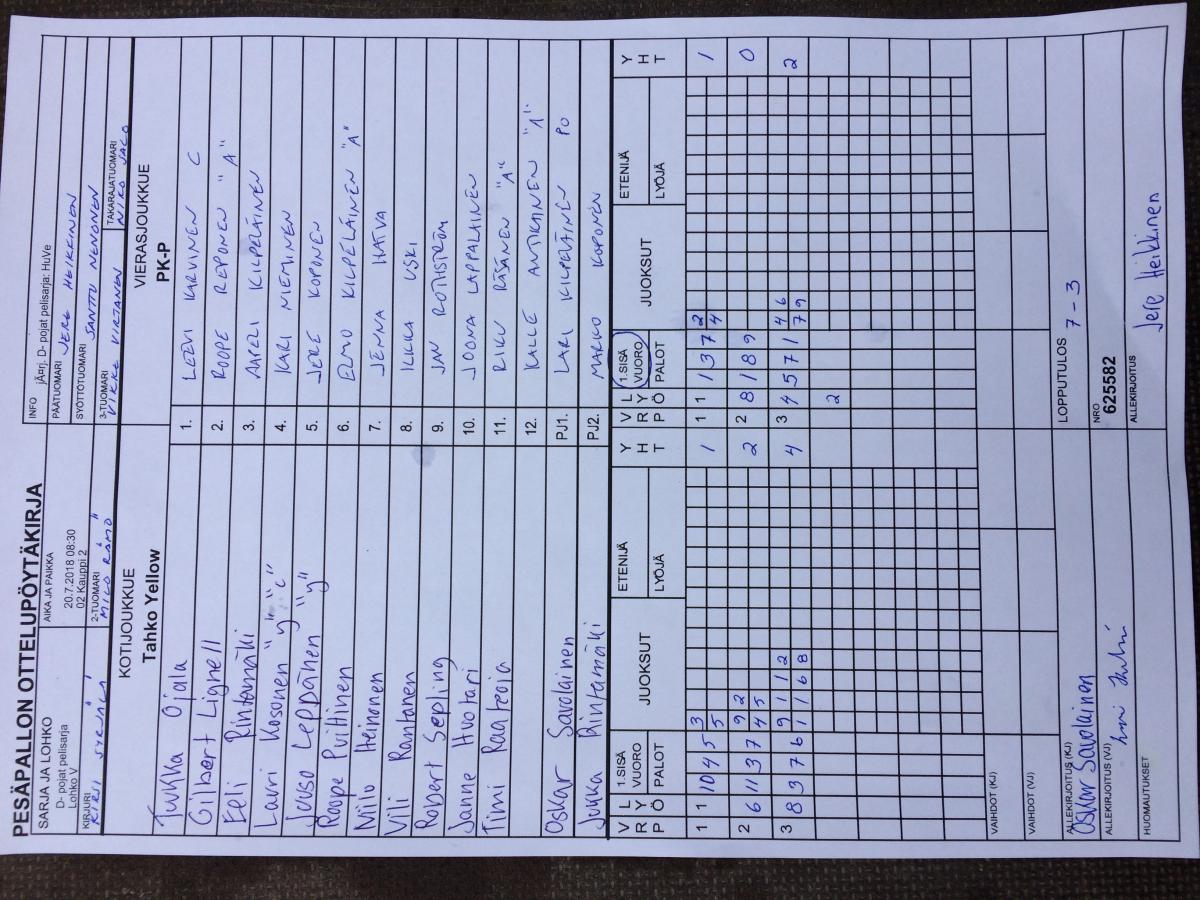 PESÄPALLON OTTELUPÖYTÄKIRJA
SARJA JA LOHKO
D- pojat pelisarja
Lohko V
AIKA JA PAIKKA
20.7.2018 08:30
02 Kauppi 2
INFO jÄ¤rj. D- pojat pelisarja: HuVe
PÄÄTUOMARI JERE HEIKKINEN
SYÖTTÖTUOMARI SANTTU NENONEN
KIRJURI KIRSI SYRJÄLÄ
2-TUOMARI MIKO RÄMÖ
3-TUOMARI VIRTANEN
TAKARAJATUOMARI NIKO
KOTIJOUKKUE
Tahko Yellow
VIERASJOUKKUE
PK-P
Tukka Ojala 1. LEEVI KARVINEN C
Gilbert Lignell 2. ROOPE REPONEN "A"
Eeli Rintamäki 3. KILPELÄINEN
Lauri Kosonen 4. KARI NIEMINEN
Juuso Leppänen "y" 5. JERE KOPONEN
Roope Pulttinen 6. ELMO KILPELÄINEN "A"
Niilo Heinonen 7. JENNA HATVA
Vili Rantanen 8. ILKKA USKI
Robert Sepling 9. JAN ROTHSTRÖM
Janne Huotari 10. JOONA LAPPALAINEN
Timi Raateoja 11. RIKU RÄSÄNEN "A"
12. KALLE ANTIKAINEN "A"
Oskar Savolainen PJ1. LARI KILPELÄINEN PO
Jukka Rintamäki PJ2. MARKO KOPONEN
V R P L Y Ö 1.SISÄ VUORO PALOT JUOKSUT ETENIJÄ LYÖJÄ Y H T V R P L Y Ö 1.SISÄ VUORO PALOT JUOKSUT ETENIJÄ LYÖJÄ Y H T
3 2
1 1 10 4 5 5 1 1 1 1 3 7 4 1
9 2
2 6 11 3 7 4 5 2 2 8 1 8 9 0
9 1 1 2 4 6
3 8 3 7 6 1 1 6 8 4 3 4 5 7 1 7 9 2
2
VAIHDOT (KJ)
VAIHDOT (VJ)
ALLEKIRJOITUS (KJ) Oskar Savolainen
LOPPUTULOS 7-3
ALLEKIRJOITUS (VJ)
NRO
625582
HUOMAUTUKSET
ALLEKIRJOITUS
Jere Heikkinen